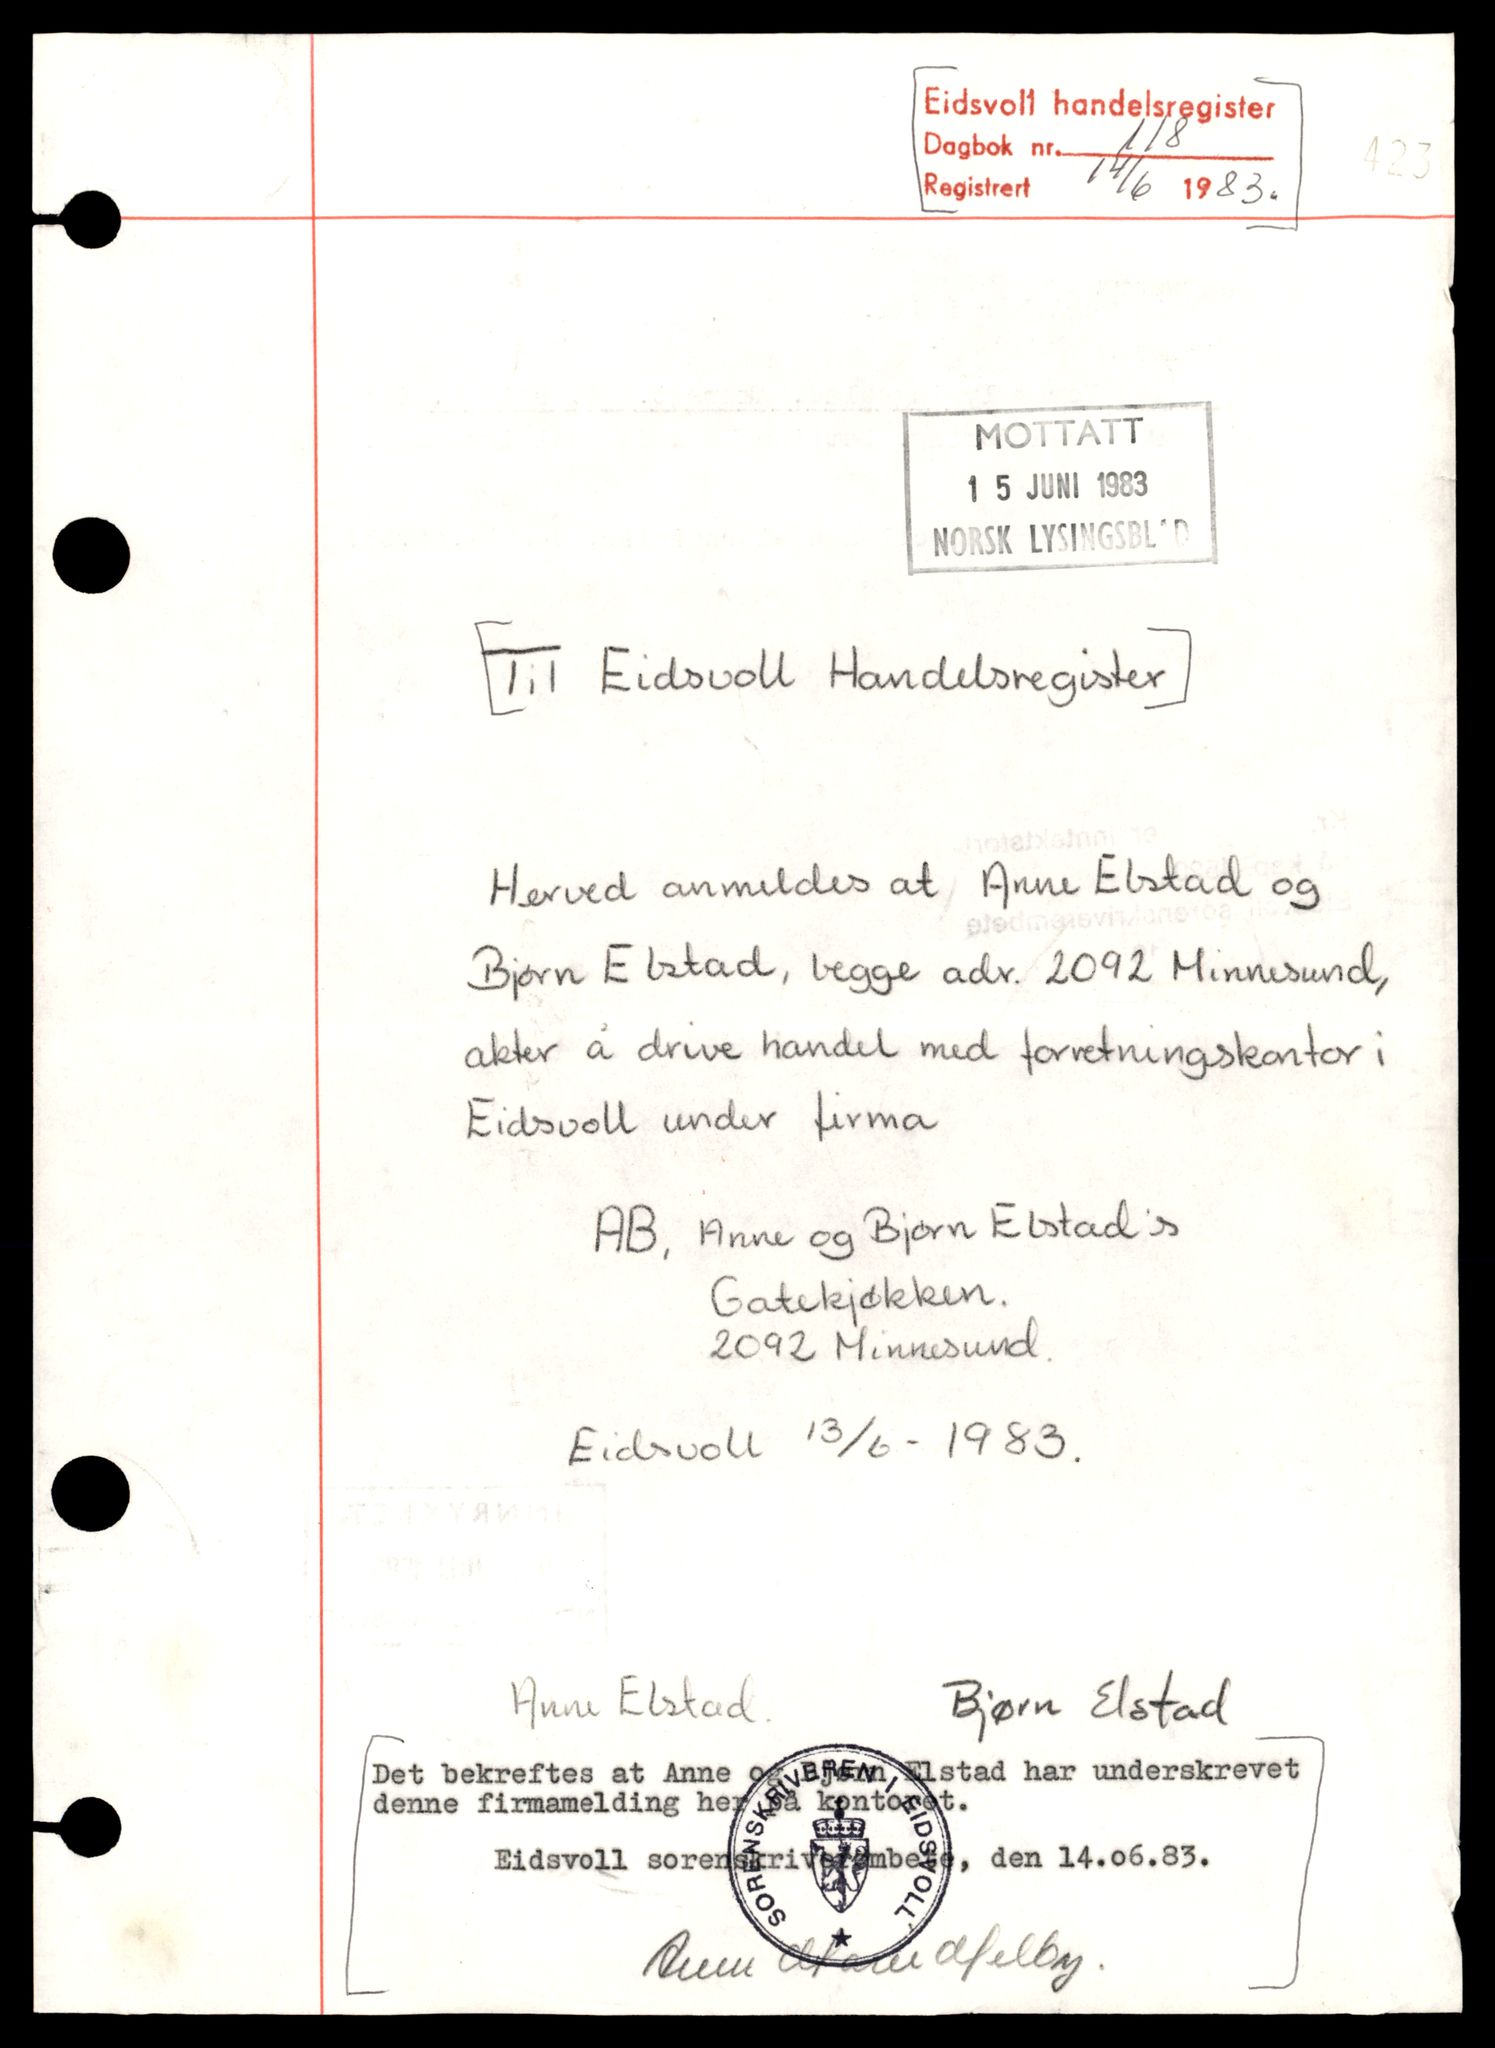 Eidsvoll handelsregister
Dagbok nr. 118
Registrert 14/6 1983.
423
MOTTATT
15 JUNI 1983
NORSK LYSINGSBL D
Til Eidsvoll Handelsregister
Herved anmeldes at Anne Elstad og
Bjørn Elstad, begge adr. 2092 Minnesund,
akter å drive handel med forretningskontor i
Eidsvoll under firma
AB, Anne og Bjørn Elstad's
Gatekjøkken.
2092 Minnesund.
Eidsvoll 13/6 - 1983.
Anne Elstad. Bjørn Elstad
Det bekreftes at Anne og Bjørn Elstad har underskrevet
denne firmamelding her på kontoret.
Eidsvoll sorenskriverembete, den 14.06.83.
SORENSKRIVEREN I EIDSVOLL